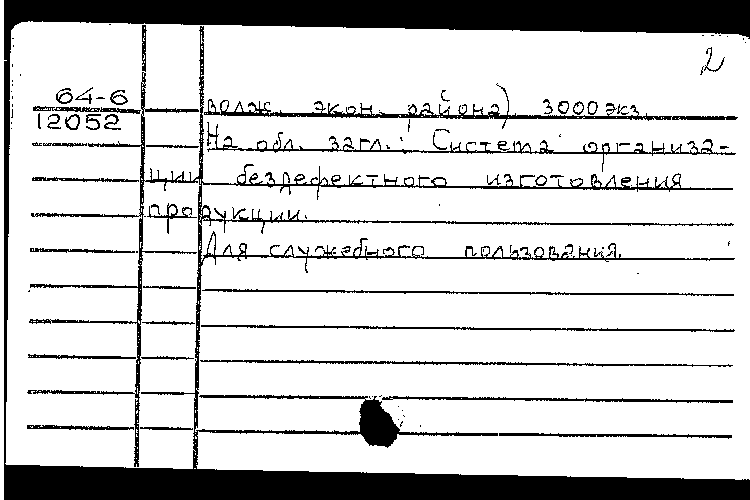 2
64-6
12052
волж. экон. района) 3000 экз.
На обл. загл.: Система организа-
ции бездефектного изготовления
продукции.
Для служебного пользования.